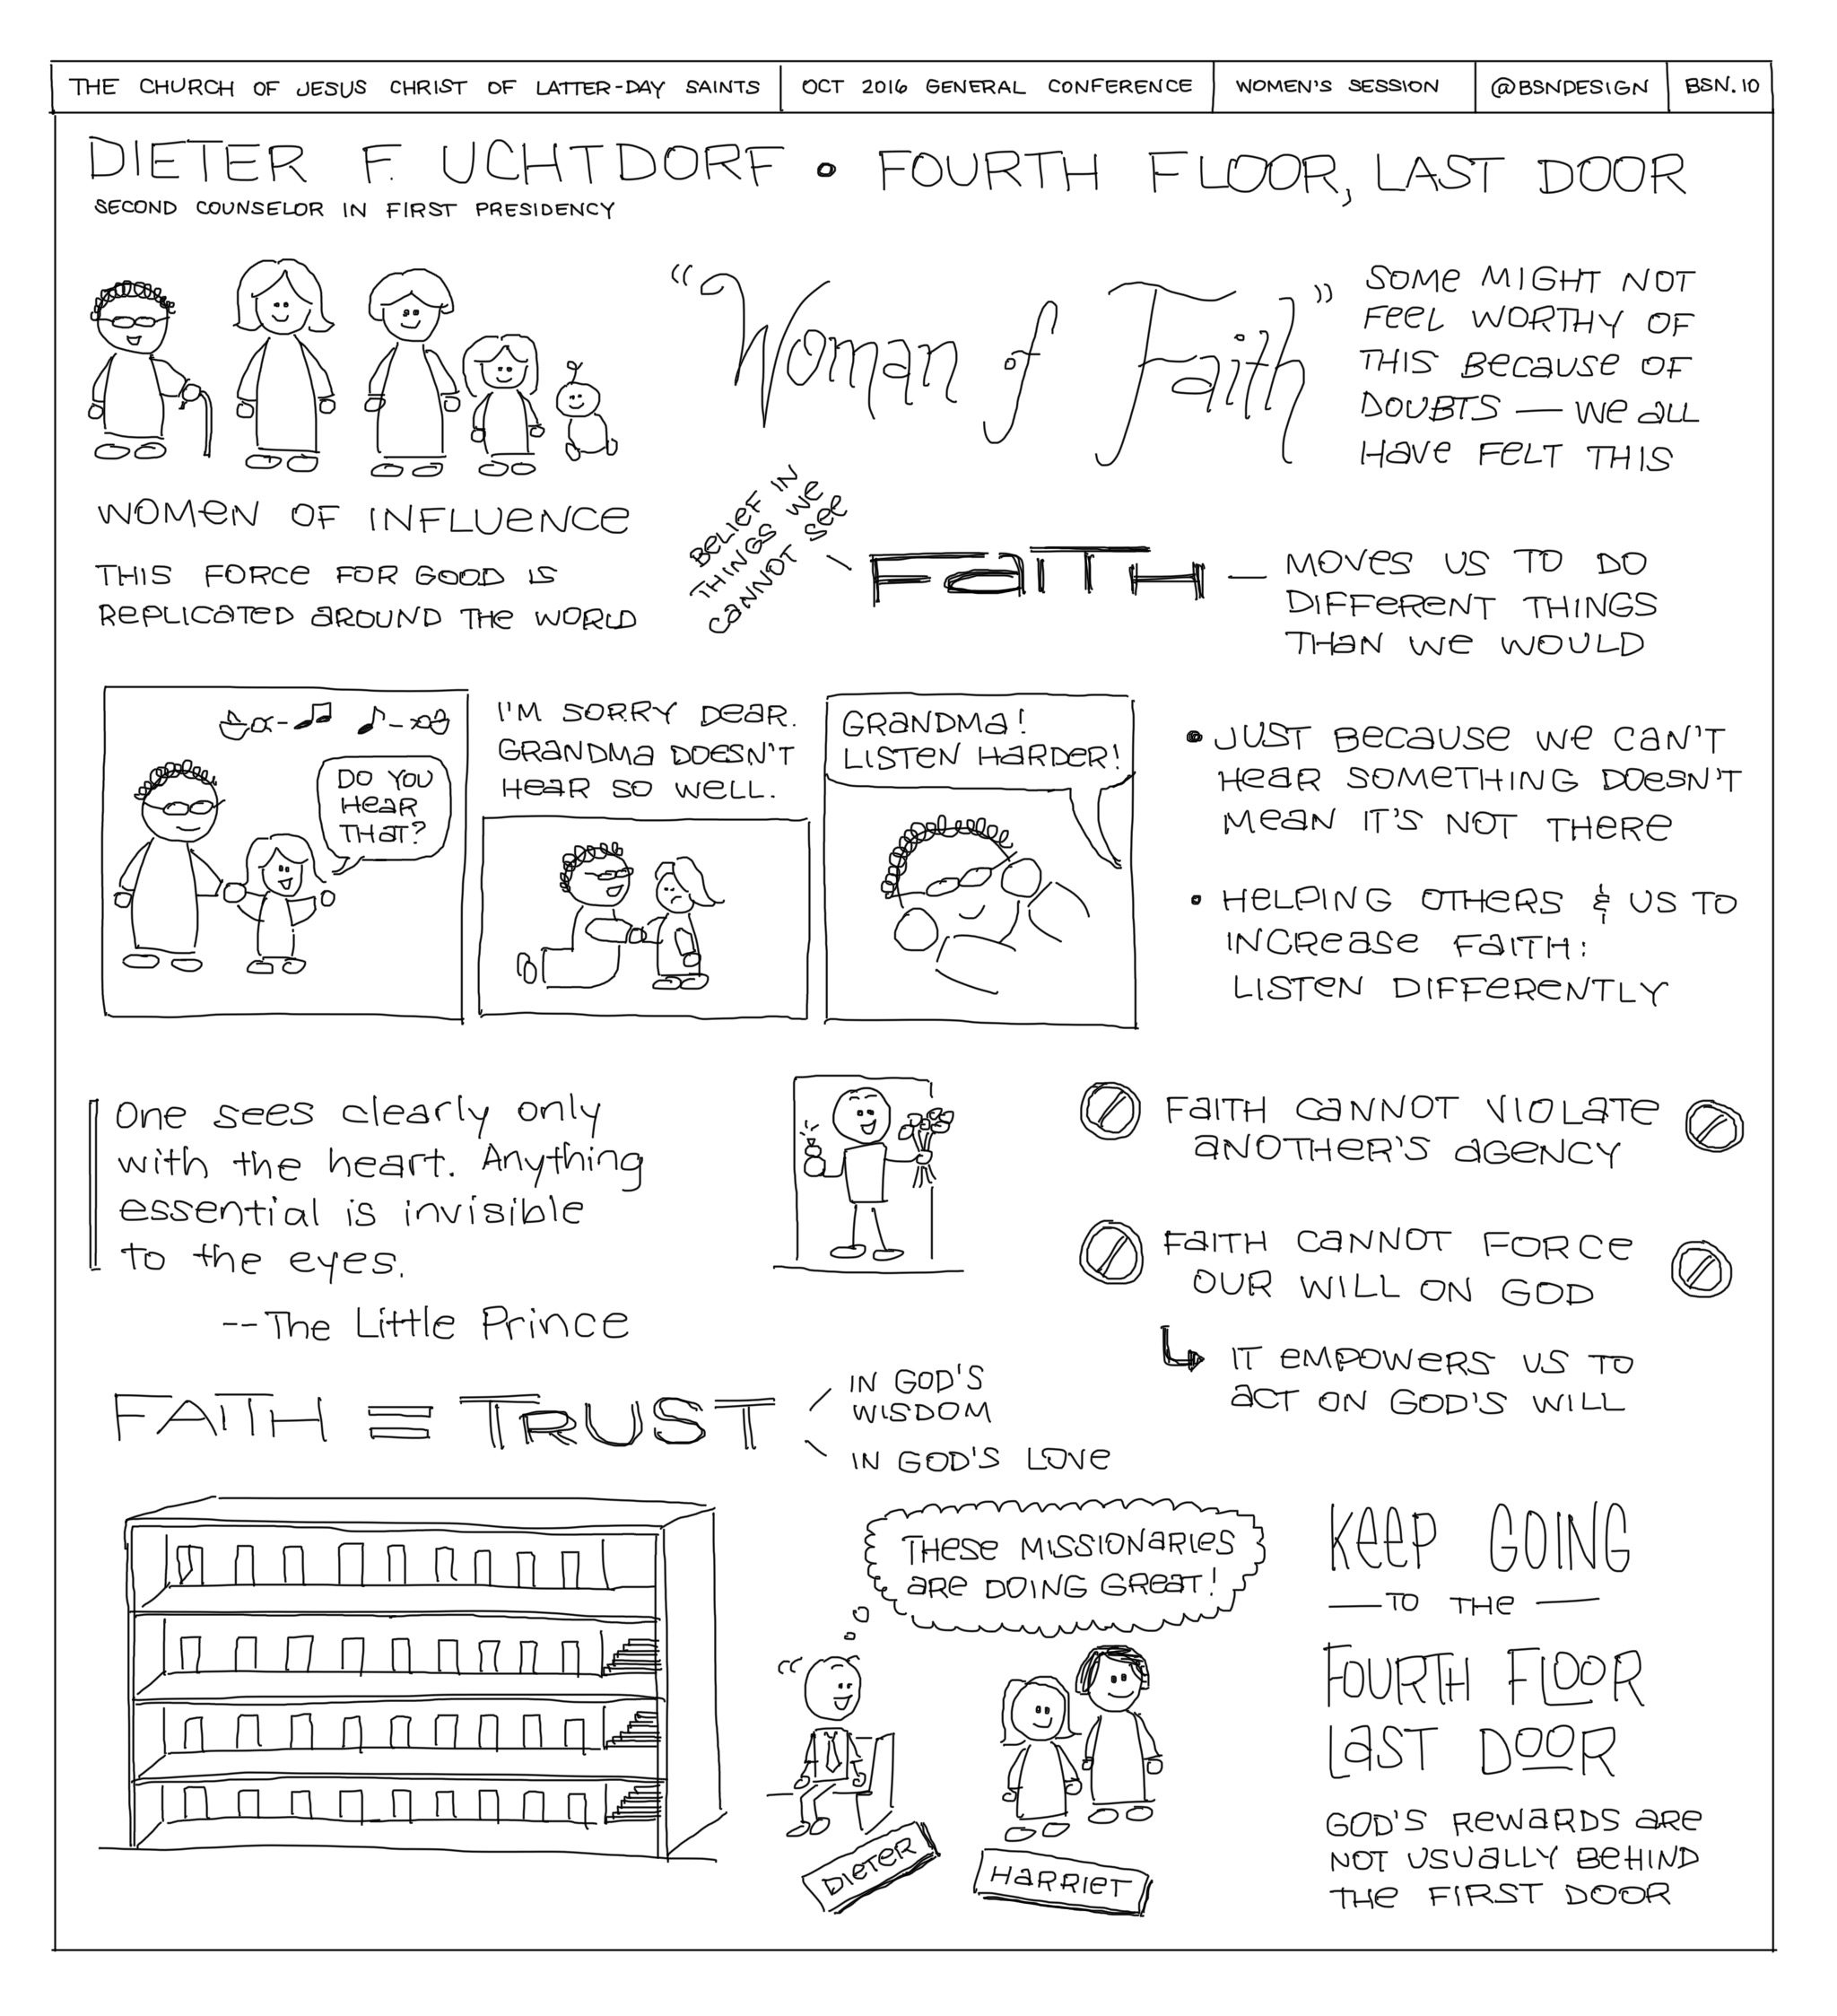 THE CHURCH OF JESUS CHRIST OF LATTER-DAY SAINTS
OCT 2016 GENERAL CONFERENCE
WOMEN'S SESSION
@BSNDESIGN
BSN.10
DIETER F. UCHTDORF • FOURTH FLOOR, LAST DOOR
SECOND COUNSELOR IN FIRST PRESIDENCY
WOMEN OF INFLUENCE
THIS FORCE FOR GOOD IS
REPLICATED AROUND THE WORLD
"Woman of Faith"
SOME MIGHT NOT
FEEL WORTHY OF
THIS BECAUSE OF
DOUBTS — WE ALL
HAVE FELT THIS
BELIEF IN
THINGS WE
CANNOT SEE
FAITH
MOVES US TO DO
DIFFERENT THINGS
THAN WE WOULD
DO YOU
HEAR
THAT?
I'M SORRY DEAR.
GRANDMA DOESN'T
HEAR SO WELL.
GRANDMA!
LISTEN HARDER!
• JUST BECAUSE WE CAN'T
HEAR SOMETHING DOESN'T
MEAN IT'S NOT THERE
• HELPING OTHERS & US TO
INCREASE FAITH:
LISTEN DIFFERENTLY
One sees clearly only
with the heart. Anything
essential is invisible
to the eyes.
--The Little Prince
FAITH CANNOT VIOLATE
ANOTHER'S AGENCY
FAITH CANNOT FORCE
OUR WILL ON GOD
IT EMPOWERS US TO
ACT ON GOD'S WILL
FAITH ≡ TRUST
IN GOD'S
WISDOM
IN GOD'S LOVE
THESE MISSIONARIES
ARE DOING GREAT!
DIETER
HARRIET
KEEP GOING
— TO THE —
FOURTH FLOOR
LAST DOOR
GOD'S REWARDS ARE
NOT USUALLY BEHIND
THE FIRST DOOR